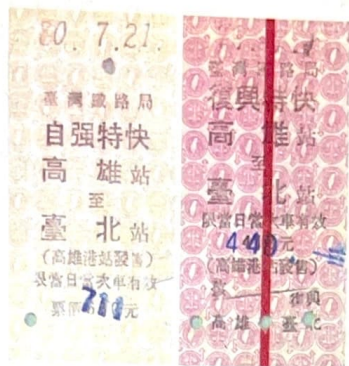 80. 7.21.
臺灣鐵路局
自强特快
高雄站
至
臺北站
(高雄港站發售)
限當日當次車有效
票價 元
臺灣鐵路局
復興特快
高雄站
至
臺北站
限當日當次車有效
440 元
(高雄港站發售)
復興
高雄 臺北